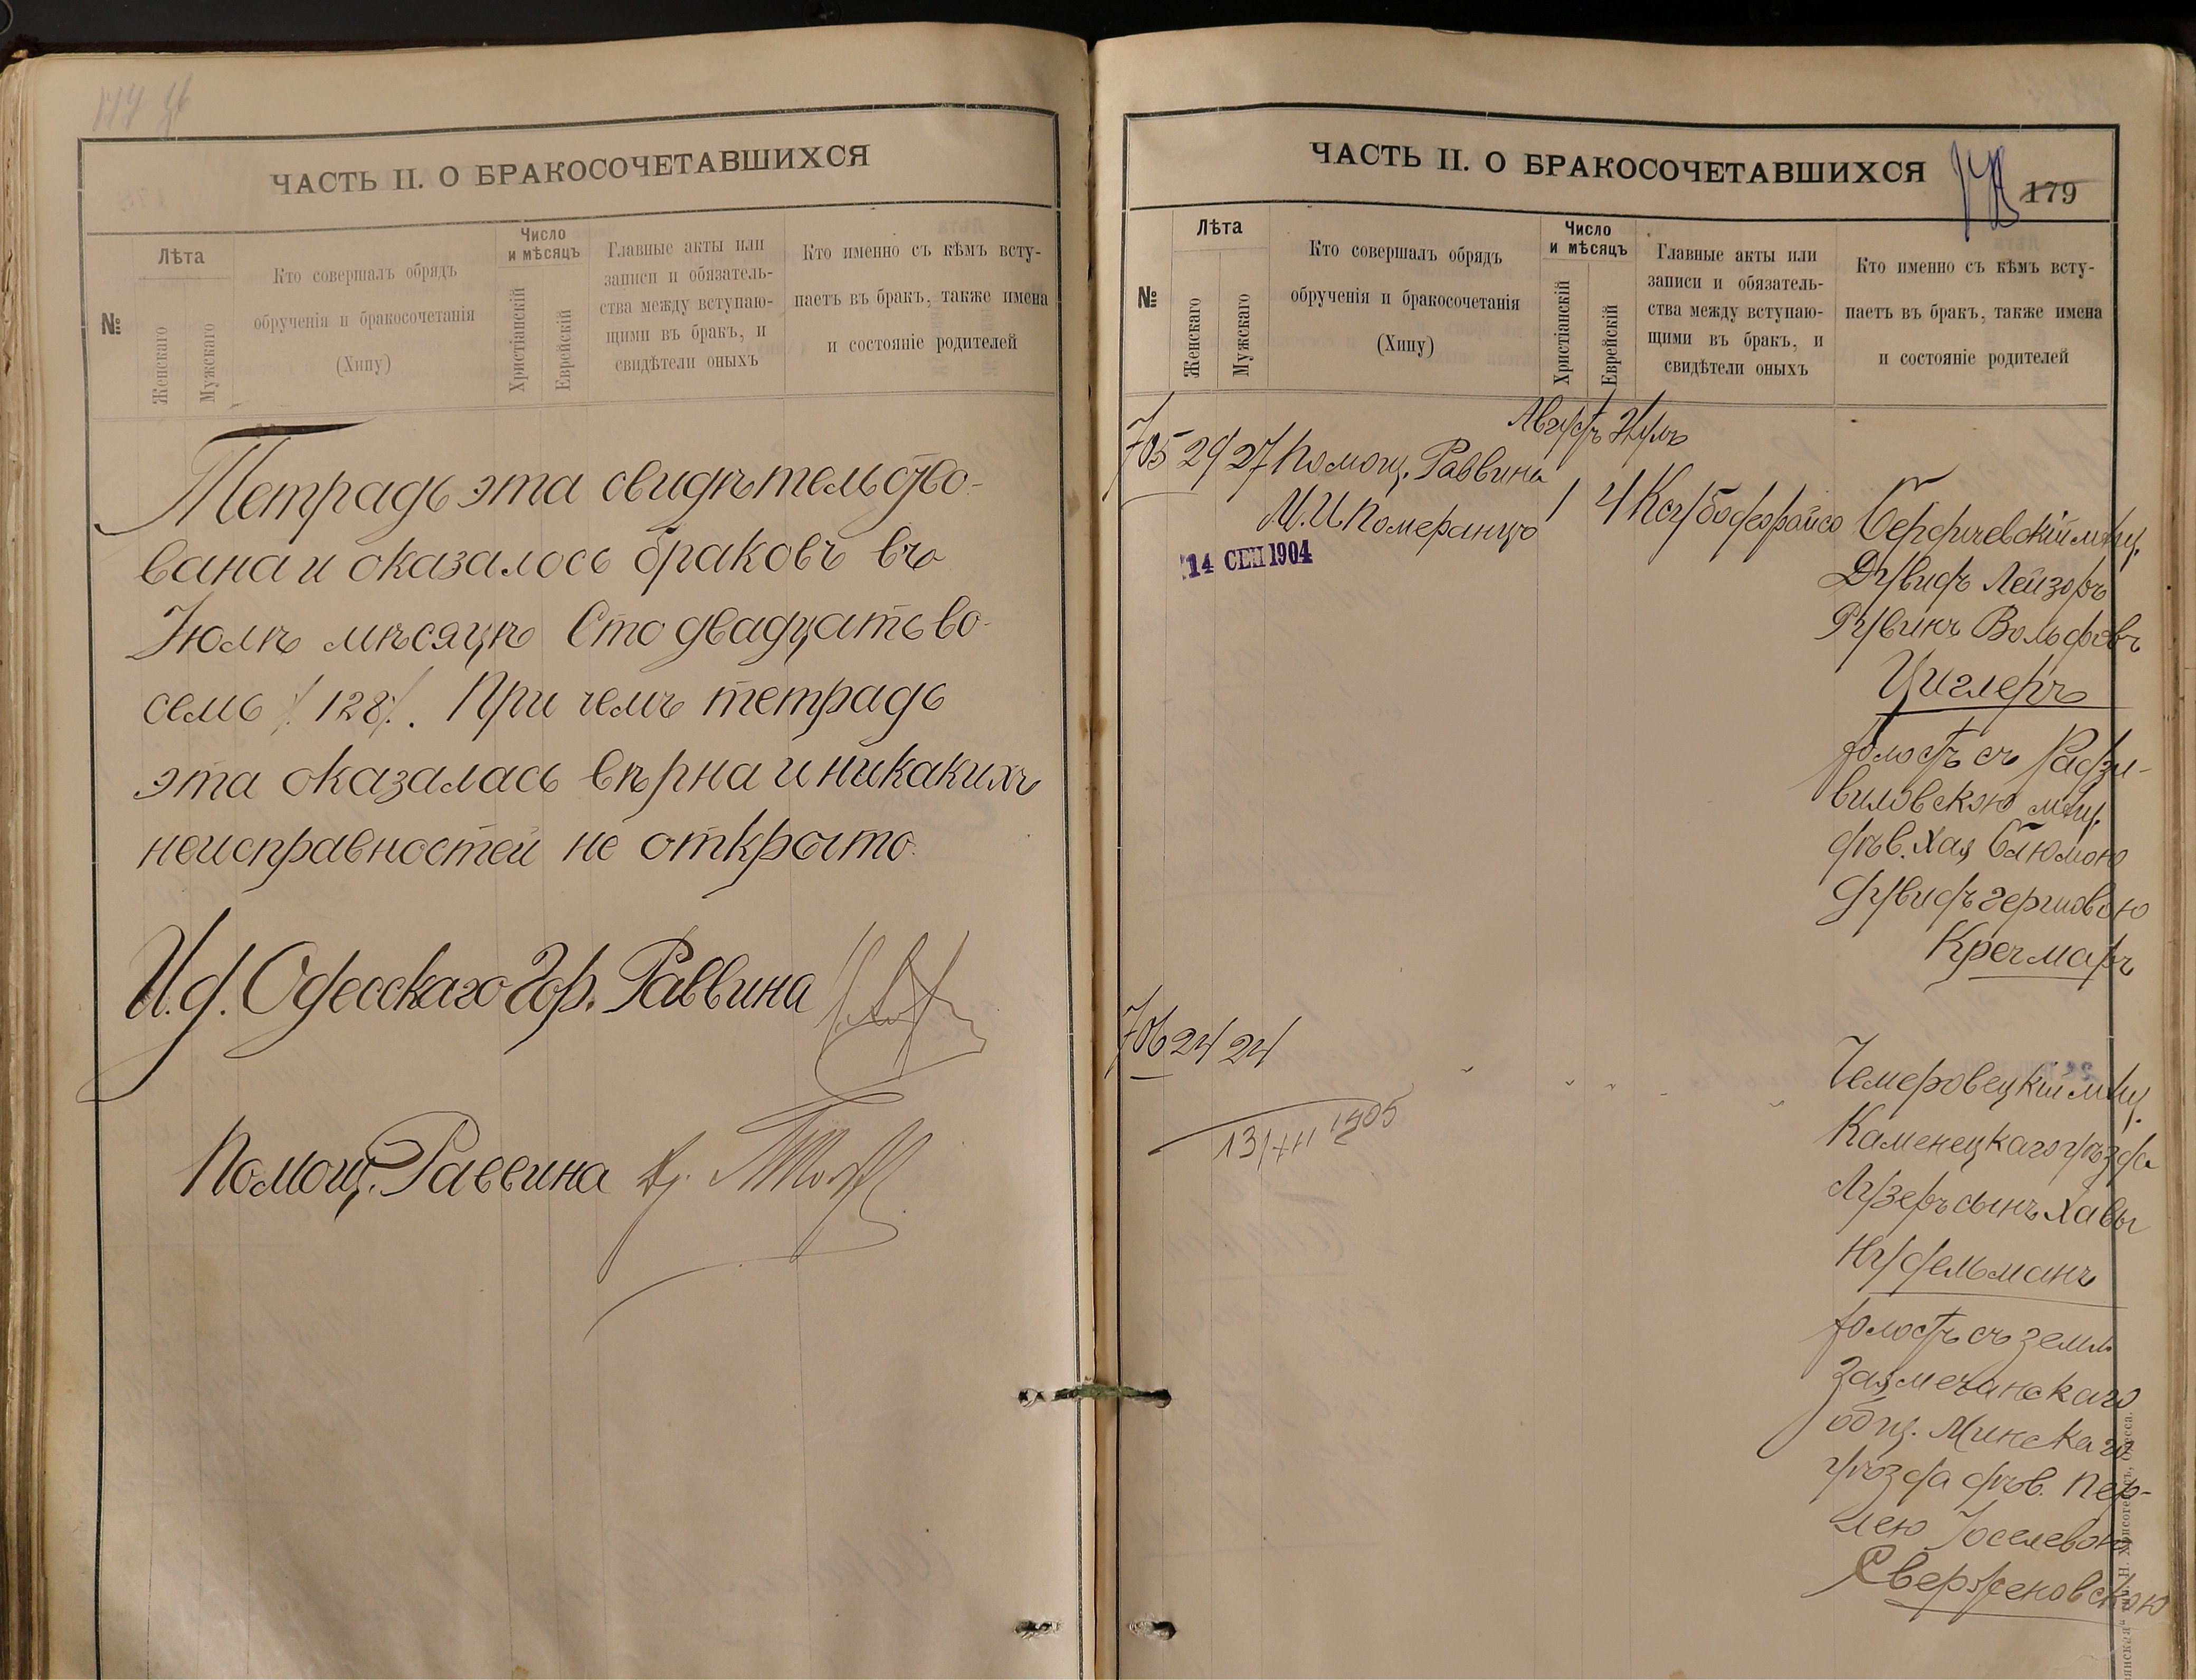 ЧАСТЬ II. О БРАКОСОЧЕТАВШИХСЯ
№
Лѣта
Женскаго
Мужскаго
Кто совершалъ обрядъ
обрученія и бракосочетанія
(Хипу)
Число
и мѣсяцъ
Христіанскій
Еврейскій
Главные акты или
записи и обязатель-
ства между вступаю-
щими въ бракъ, и
свидѣтели оныхъ
Кто именно съ кѣмъ всту-
паетъ въ бракъ, также имена
и состояніе родителей
Тетрадь эта свидѣтельство-
вана и оказалось браковъ въ
Іюлѣ мѣсяцѣ Сто двадцать во-
семь /128/. При чемъ тетрадь
эта оказалась вѣрна и никакихъ
неисправностей не открыто.
И.д. Одесскаго Гор. Раввина
Помощ. Раввина
ЧАСТЬ II. О БРАКОСОЧЕТАВШИХСЯ
179
№
Лѣта
Женскаго
Мужскаго
Кто совершалъ обрядъ
обрученія и бракосочетанія
(Хипу)
Число
и мѣсяцъ
Христіанскій
Еврейскій
Главные акты или
записи и обязатель-
ства между вступаю-
щими въ бракъ, и
свидѣтели оныхъ
Кто именно съ кѣмъ всту-
паетъ въ бракъ, также имена
и состояніе родителей
Августъ Элулъ
705 29 27 Помощ. Раввина
М.И. Померанцъ
1 4
14 СЕН 1904
Бердичевскій мѣщ.
Дувидъ Лейзоръ
Рувинъ Вольфовъ
Циглеръ
холостъ съ Радзи-
виловскою мѣщ.
дѣв. Хая Блюмою
Дувидъ Гершовою
Кречмаръ
706 24 24
13/VII 1905
Чемеровецкій мѣщ.
Каменецкаго уѣзда
Лузеръ сынъ Хавы
Нудельманъ
холостъ съ земл.
общ. Минскаго
уѣзда дѣв. Пер-
лею Іоселевою
Сверженовскою